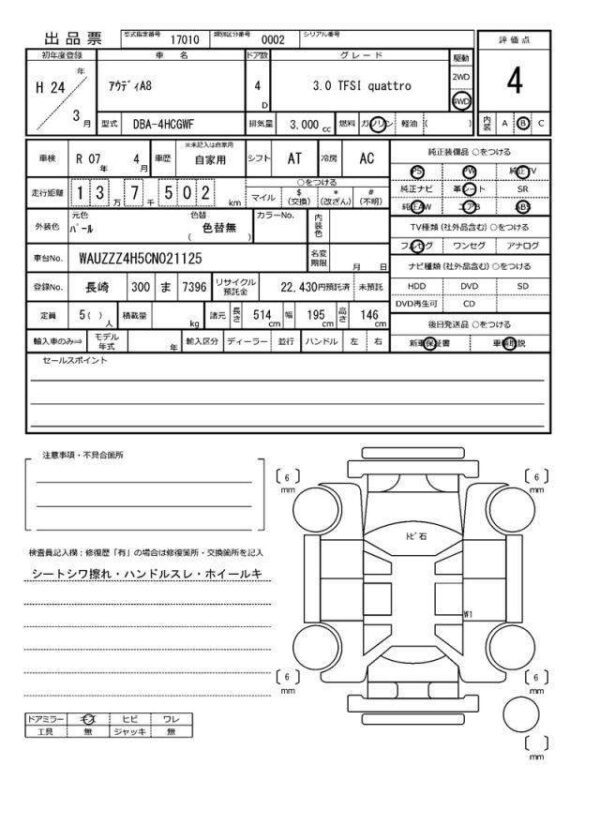 出品票 型式指定番号 17010 類別区分番号 0002 シリアル番号
評価点
4
初年度登録 車名 ドア数 グレード 駆動
H 24 年 3 月
アウディA8 4 D 3.0 TFSI quattro 2WD 4WD
型式 DBA-4HCGWF 排気量 3,000 cc 燃料 ガソリン 軽油 ( )
内装 A B C
車検 R 07 年 4 月 車歴 ※未記入は自家用 自家用 シフト AT 冷房 AC
純正装備品 ○をつける
PS PW 純正TV
純正ナビ 革シート SR
純正AW エアB ABS
走行距離 13万7千502 km
○をつける
マイル $(交換) *(改ざん) #(不明)
外装色 元色 パール 色替 色替無 ( ) カラーNo. 内装色
TV種類(社外品含む)○をつける
フルセグ ワンセグ アナログ
車台No. WAUZZZ4H5CN021125 名変期限 月 日
ナビ種類(社外品含む)○をつける
HDD DVD SD
DVD再生可 CD
登録No. 長崎 300 ま 7396 リサイクル預託金 22,430円預託済 未預託
定員 5( )人 積載量 kg 諸元 長さ 514 cm 幅 195 cm 高さ 146 cm
後日発送品 ○をつける
新車保証書 車輌取説
輸入車のみ⇒ モデル年式 年 輸入区分 ディーラー 並行 ハンドル 左 右
セールスポイント
注意事項・不具合箇所
検査員記入欄:修復歴「有」の場合は修復箇所・交換箇所を記入
シートシワ擦れ・ハンドルスレ・ホイールキ
6 mm
6 mm
トビ石
W1
6 mm
6 mm
mm
ドアミラー キズ ヒビ ワレ
工具 無 ジャッキ 無